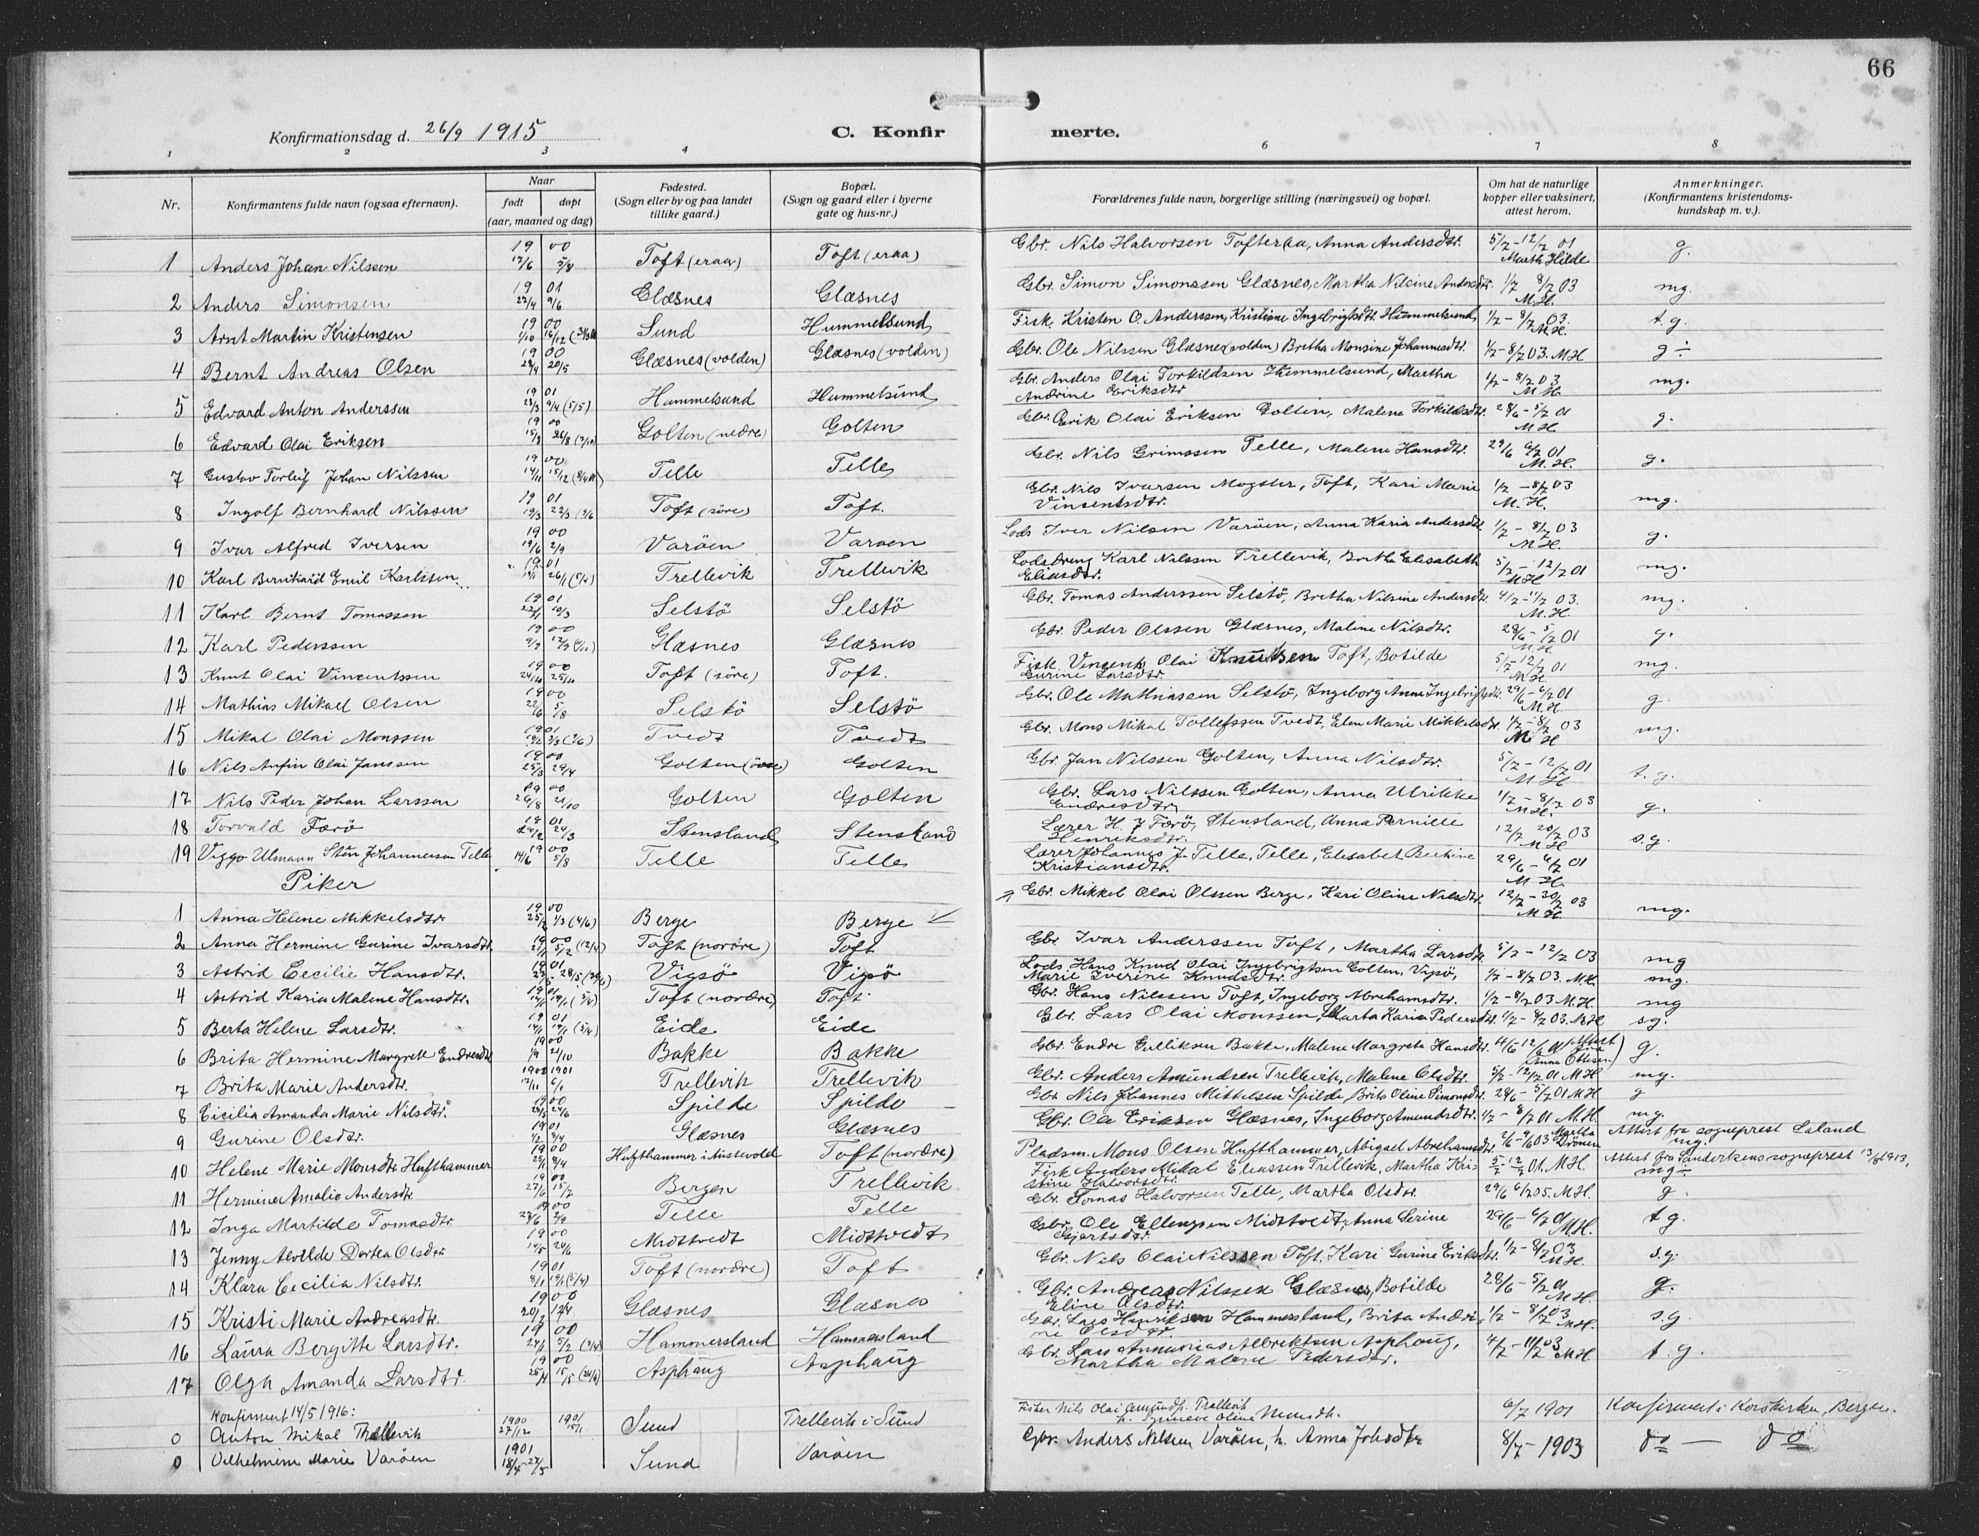 66
Konfirmationsdag d. 26/9 1915
C. Konfir merte.
1 2 3 4 6 7 8
Nr. Konfirmantens fulde navn (ogsaa efternavn). Naar født døpt (aar, maaned og dag) Fødested. (Sogn eller by og paa landet tillike gaard.) Bopæl. (Sogn og gaard eller i byerne gate og hus-nr.) Forældrenes fulde navn, borgerlige stilling (næringsvei) og bopæl. Om hat de naturlige kopper eller vaksinert, attest herom. Anmerkninger. (Konfirmantens kristendoms-kundskap m. v.).
1 Anders Johan Nilssen 1900 Toft (eraa) Toft (eraa) Gbr. Nils Halvorsen Tofteraa, Anna Andersdtr. 5/7-12/7 01 Marth Hilde g.
2 Anders Simonsen 1901 22/4 9/6 Glæsnes Glæsnes Gbr. Simon Simonssen Glæsnes, Martha Nilsine Andersdtr. 1/7 8/7 03 M.H. mg.
3 Arnt Martin Kristensen 1900 Sund Hummelsund Fisk. Kristen O. Anderssen, Kristine Ingebrigtsdtr. Hummelsund 1/7-8/7 03. M.H. t.g.
4 Bernt Andreas Olsen 1900 20/5 Glæsnes (volden) Glæsnes (volden) Gbr. Ole Nilssen Glæsnes (volden) Britha Monsine Johannesdtr. 1/7-8/7 03. M.H g ÷
5 Edvard Anton Anderssen 1901 Hummelsund Hummelsund Gbr. Anders Olai Torkildsen Hummelsund, Martha Andrine Eriksdtr. 1/7-8/7 03 M.H. mg.
6 Edvard Olai Eriksen 1900 Golten (nedre) Golten Gbr. Erik Olai Eriksen Golten, Malene Torkildsdtr. 28/6-5/7 01 M.H g.
7 Gustav Torleif Johan Nilssen 1900 Telle Telle Gbr. Nils Grimssen Telle, Malene Hansdtr. 29/6 6/7 01 M.H. g.
8 Ingolf Bernhard Nilssen 1901 Toft (söre) Toft. Gbr. Nils Ivarsen Mogster, Toft, Kari Marie Vinsentsdtr. 1/7-8/7 03 M.H. mg.
9 Ivar Alfred Iversen 1900 19/6 2/9 Varöen Varöen Lods Iver Nilsen Varöen, Anna Karia Andersdtr. 1/7-8/7 03 M.H. g.
10 Karl Bernhard Emil Karlssen 1901 Trellevik Trellevik Lodsdreng Karl Nilssen Trellevik, Britha Elisabeth Eliasdtr. 5/7-12/7 01 M.H mg.
11 Karl Bernt Tomassen 1901 Selstö Selstö Gbr. Tomas Anderssen Selstö, Bretha Nilsine Andersdtr. 4/7-11/7 03. M.H mg.
12 Karl Pederssen 1900 Glæsnes Glæsnes Gbr. Peder Olssen Glæsnes, Malene Nilsdtr. 28/6-5/7 01 M.H. g.
13 Knut Olai Vincentssen 1900 Toft (söre) Toft. Fisk. Vinsents Olai Knutsen Toft, Botilde Gurine Larsdtr. 5/7-12/7 01 M.H mg.
14 Mathias Mikael Olsen 1900 22/6 5/8 Selstö Selstö Gbr. Ole Mathiassen Selstö, Ingeborg Anna Ingebrigtsdtr. 29/6-6/7 01 M.H. g.
15 Mikal Olai Monssen 1901 Tvedt Tvedt Gbr. Mons Mikal Tollefssen Tvedt, Elen Marie Mikkelsdtr. 1/7-8/7 03 M H mg.
16 Nils Anfin Olai Janssen 1900 25/3 29/4 Golten (övre) Golten Gbr. Jan Nilssen Golten, Anna Nilsdtr. 5/7-12/7 01 M H t.g.
17 Nils Peder Johan Larssen 1900 26/8 Golten Golten Gbr. Lars Nilssen Golten, Anna Ulrikke Endresdtr. 1/7-8/7 03 M.H. g.
18 Torvald Færö 1901 Stensland Stensland Lærer H. J Færö, Stensland, Anna Pernille Henriksdtr. 12/7 20/7 03 M.H s.g.
19 Viggo Ulmann Sten Johannessen Telle 1900 14/6 5/8 Telle Telle Lærer Johannes J. Telle, Telle, Elisabet Bertine Kristiansdtr. 29/6-6/7 01 M.H.
Piker
1 Anna Helene Mikkelsdtr. 1900 Berge Berge Gbr. Mikkel Olai Olssen Berge, Kari Oline Nilsdtr. 12/7-20/7 03 M H mg.
2 Anna Hermine Gurine Ivarsdtr. 1900 Toft (nordre) Toft Gbr Ivar Anderssen Toft, Martha Larsdtr. 5/7-12/7 03 mg
3 Astrid Cecilie Hansdtr. 1901 Vigsö Vigsö Lods Hans Knud Olai Ingebrigtsen Golten, Vigsö, Marie Iverine Knudsdtr. 1/7-8/7 03. M.H. mg.
4 Astrid Karia Malene Hansdtr. 1901 Toft (nordre) Toft. Gbr. Hans Nilssen Toft, Ingeborg Abrahamsdtr. 1/7-8/7 03 M.H. mg
5 Berta Helene Larsdtr. 1901 Eide Eide Gbr. Lars Olai Monssen, Marta Karia Pedersdtr. 1/7-8/7 03. M.H s.g.
6 Brita Hermine Margrete Endresdtr 1900 Bakke Bakke Gbr. Endre Gulliksen Bakke, Malene Margreta Hansdtr. 4/6-12/6 01 (Attest fra Anna Ottesen) g.
7 Brita Marie Andersdtr. 1900 1901 12/11 6/1 Trellevik Trellevik Gbr. Anders Amundsen Trellevik, Malene Olsdtr. 5/7-12/7 01 M.H mg.
8 Cicilia Amanda Marie Nilsdtr. 1900 Spilde Spilde Gbr. Nils Johannes Mikkelsen Spilde, Brita Oline Simonsdtr. 28/6-5/7 01 M.H g
9 Gurine Olsdtr. 1901 Glæsnes Glæsnes Gbr. Ole Eriksen Glæsnes, Ingeborg Amundsdtr. 1/7-8/7 01 M.H. mg.
10 Helene Marie Monsdtr. Hufthammer 1900 Hufthammer i Austevold Toft (nordre) Pladsm. Mons Olsen Hufthammer, Abigael Abrahamsdtr. 2/6-9/6 03 Martha Drönen Attest fra sogneprest Løland mg.
11 Hermine Amalie Andersdtr. 1900 Bergen Trellevik Fisk Anders Mikal Eliassen Trellevik, Martha Kristine Halvorsdtr. 5/7 12/7 01. M.H. Attest fra Sandvikens sogneprest 13/8 1913, mg ÷
12 Inga Martilde Tomasdtr. 1900 Telle Telle Gbr. Tomas Halvorsen Telle, Martha Olsdtr. 29/6 6/7 05. M.H. g.
13 Jenny Alvilde Dortea Olsdtr. 1900 14/5 24/6 Midtvedt Midtvedt Gbr. Ole Ellengsen Midtvedt, Anna Serine Gjertsdtr. 29/6-6/7 01 M.H. t g.
14 Klara Cecilia Nilsdtr. 1901 Toft (nordre) Toft Gbr. Nils Olai Nilssen Toft, Kari Gurine Eriksdtr. 1/7-8/7 03 M.H. s.g.
15 Kristi Marie Andreasdtr. 1900 Glæsnes Glæsnes Gbr. Andreas Nilssen Glæsnes, Botilde Eline Olsdtr. 28/6-5/7 01 M.H. g.
16 Laura Bergitte Larsdtr. 1900 Hammersland Hammersland Gbr. Lars Henriksen Hammersland, Brita Andrine Olsdtr. 1/7-8/7 03 M.H. s.g.
17 Olga Amanda Larsdtr. 1900 Asphaug Asphaug Gbr. Lars Ananias Albrektsen Asphaug, Martha Malene Pedersdtr. 4/7-11/7 03 M.H. t.g.
Konfirmert 14/5 1916:
0 Anton Mikal Thrællevik 1900 27/12 1901 15/1 Sund Trellevik i Sund Fisker Nils Olai Amundsf. Trellevik h. Synneve Oline Monsdtr. 6/7 1901 Konfirmert i Korskirken, Bergen.
0 Vilhelmine Marie Varöen 1901 18/4-27/5 Sund Varöen Gbr. Anders Nilsen Varöen, h. Anna Johsdtr 8/7-1903 do — do